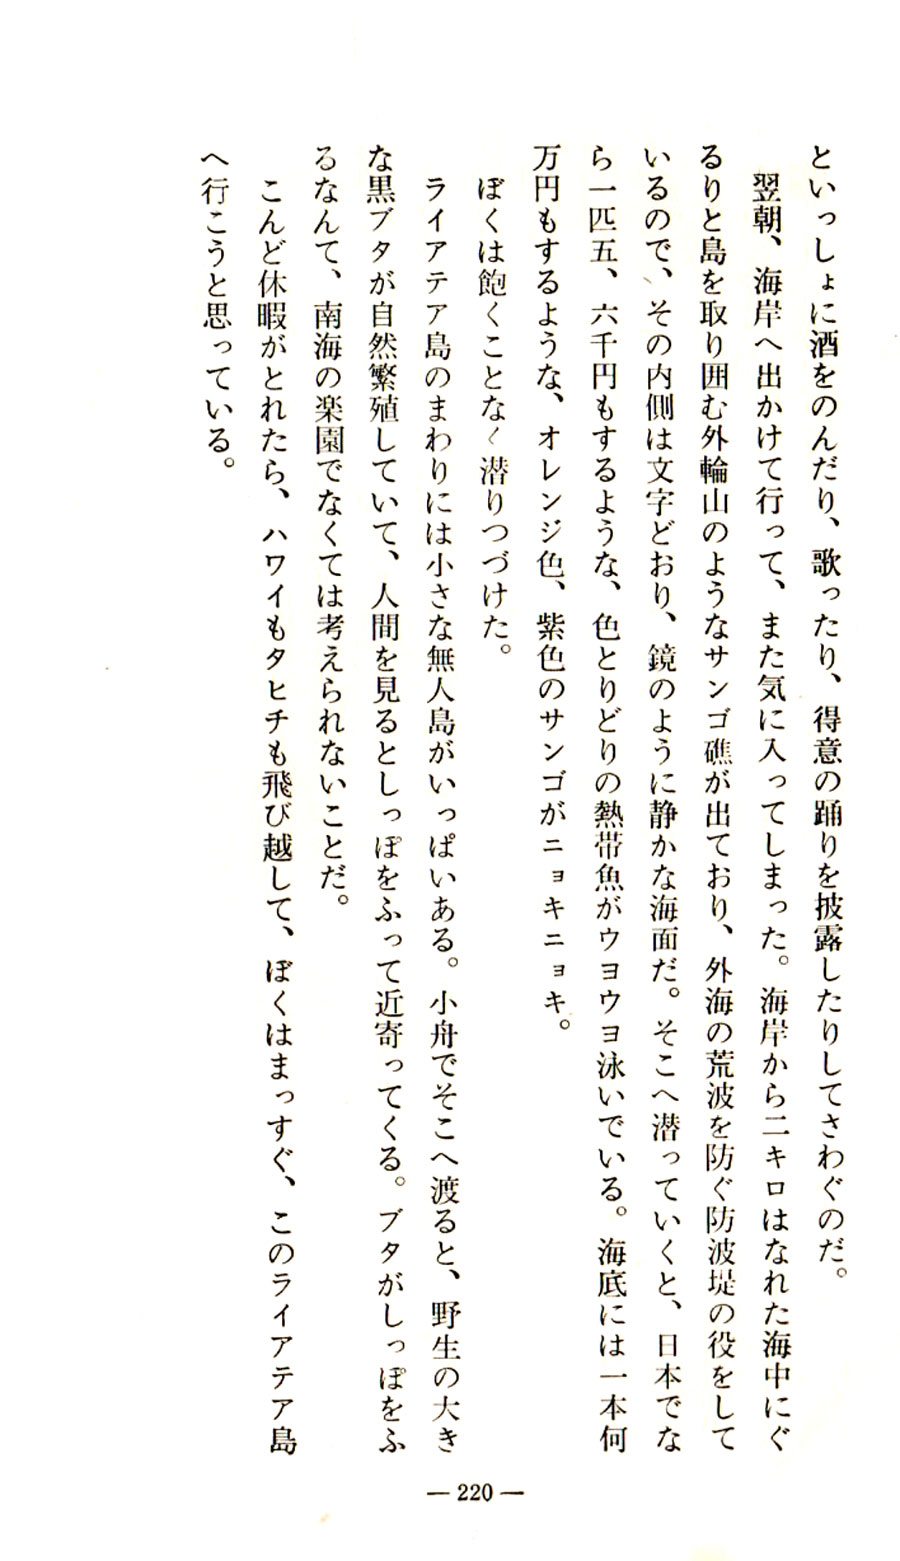 といっしょに酒をのんだり、歌ったり、得意の踊りを披露したりしてさわぐのだ。
翌朝、海岸へ出かけて行って、また気に入ってしまった。海岸から二キロはなれた海中にぐ
るりと島を取り囲む外輪山のようなサンゴ礁が出ており、外海の荒波を防ぐ防波堤の役をして
いるので、その内側は文字どおり、鏡のように静かな海面だ。そこへ潜っていくと、日本でな
ら一匹五、六千円もするような、色とりどりの熱帯魚がウヨウヨ泳いでいる。海底には一本何
万円もするような、オレンジ色、紫色のサンゴがニョキニョキ。
ぼくは飽くことなく潜りつづけた。
ライアテア島のまわりには小さな無人島がいっぱいある。小舟でそこへ渡ると、野生の大き
な黒ブタが自然繁殖していて、人間を見るとしっぽをふって近寄ってくる。ブタがしっぽをふ
るなんて、南海の楽園でなくては考えられないことだ。
こんど休暇がとれたら、ハワイもタヒチも飛び越して、ぼくはまっすぐ、このライアテア島
へ行こうと思っている。
— 220 —